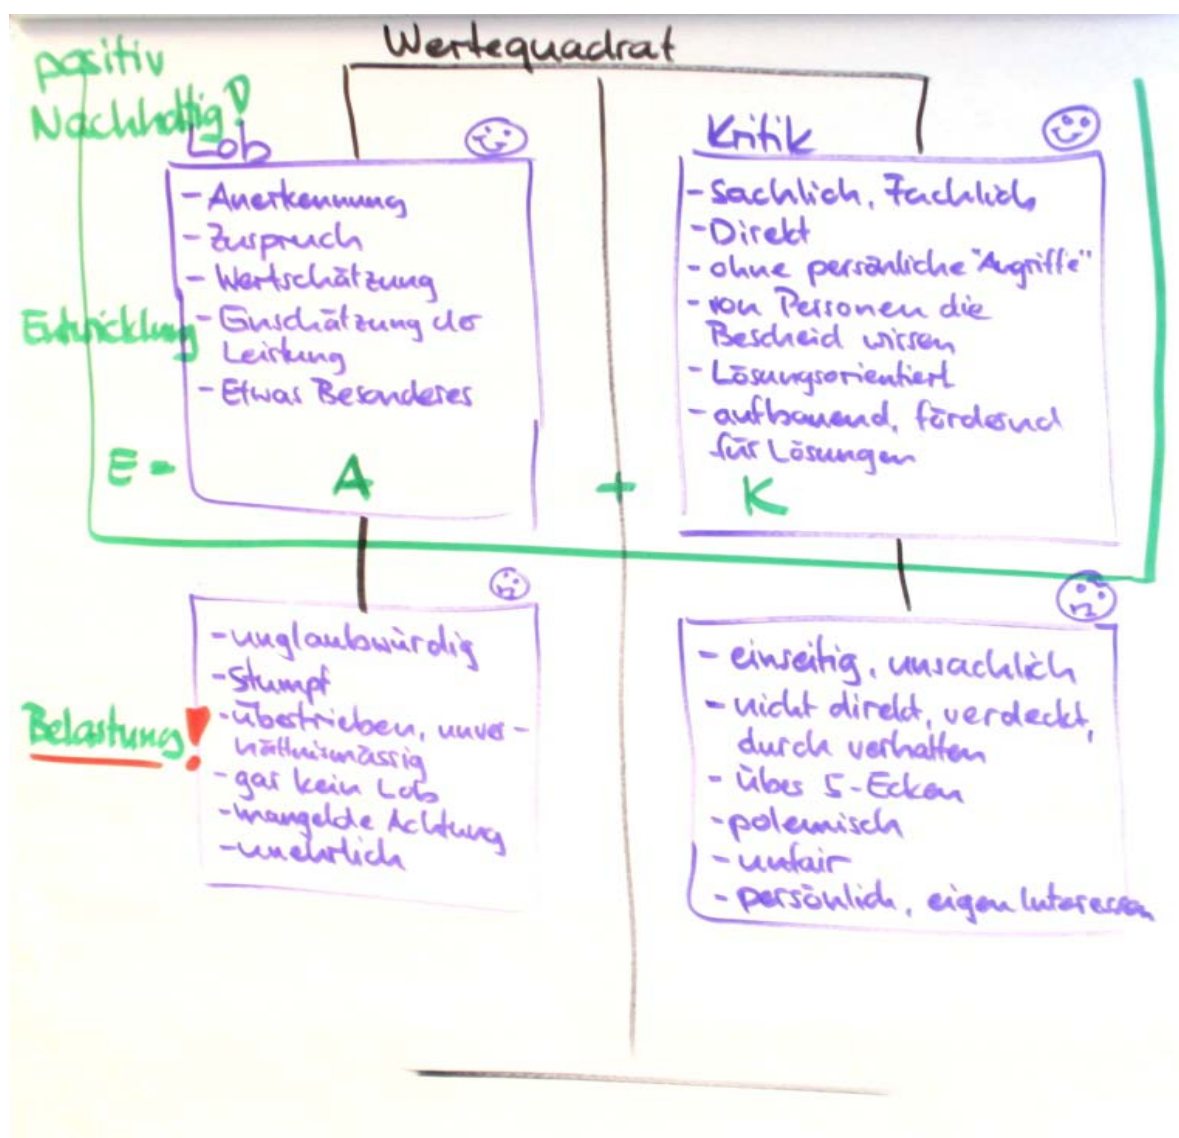 Wertequadrat
positiv
Nachhaltig!
Lob
- Anerkennung
- Zuspruch
- Wertschätzung
- Einschätzung der
Leistung
- Etwas Besonderes
Entwicklung
E =
A
+
K
Kritik
- Sachlich, Fachlich
- Direkt
- ohne persönliche "Angriffe"
- von Personen die
Bescheid wissen
- Lösungsorientiert
- aufbauend, fördernd
für Lösungen
Belastung!
- unglaubwürdig
- Stumpf
- übertrieben, unver-
hältnismässig
- gar kein Lob
- mangelde Achtung
- unehrlich
- einseitig, unsachlich
- nicht direkt, verdeckt,
durch verhalten
- über 5-Ecken
- polemisch
- unfair
- persönlich, eigen Interessen